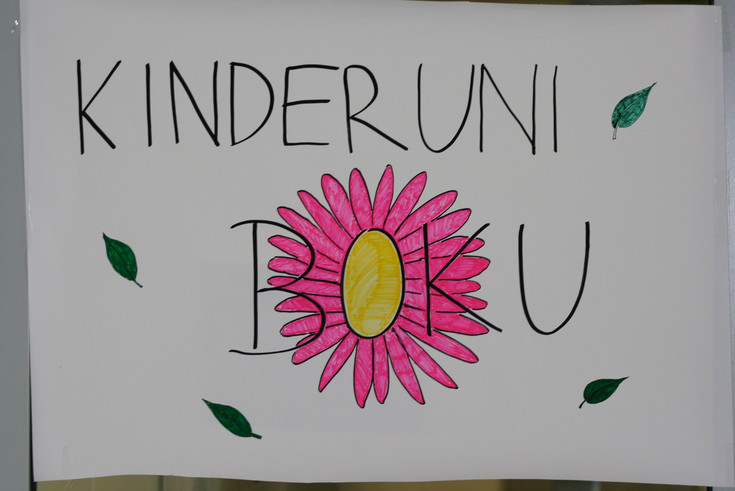 KINDERUNI
BOKU